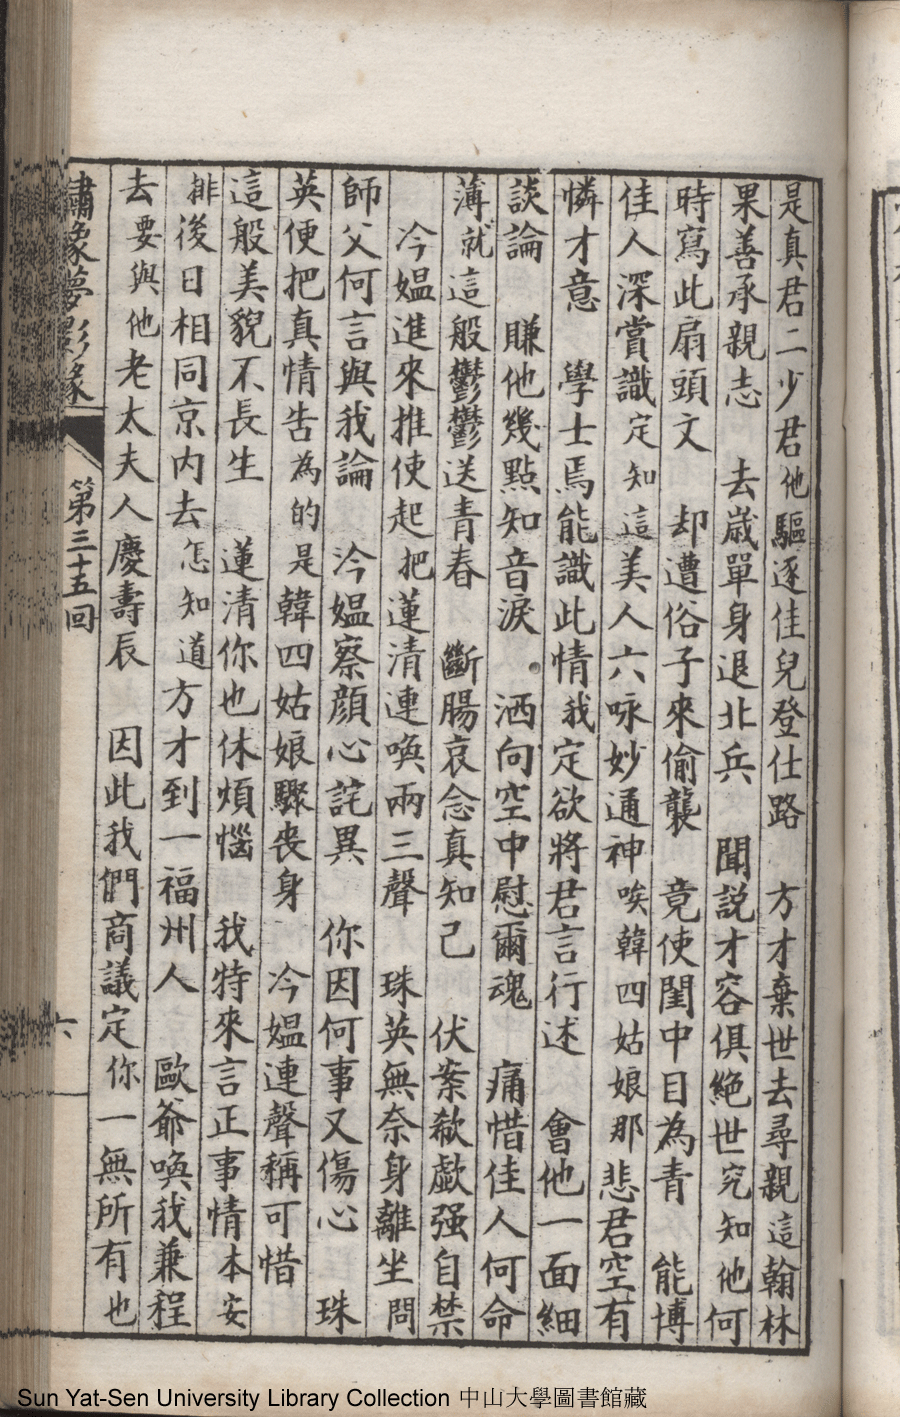 是真君二少君他驅逐佳兒登仕路　方才棄世去尋親這翰林
果善承親志　去歲單身退北兵　聞説才容俱絶世究知他何
時寫此扇頭文　却遭俗子來偷襲　竟使閨中目為青　能博
佳人深賞識定知這美人六咏妙通神唉韓四姑娘那悲君空有
憐才意　學士焉能識此情我定欲將君言行述　會他一面細
談論　賺他幾點知音淚　洒向空中慰爾魂　痛惜佳人何命
薄就這般鬱鬱送青春　斷腸哀念真知己　伏案欷歔强自禁
冷媼進來推使起把蓮清連喚兩三聲　珠英無奈身離坐問
師父何言與我論　冷媼察顔心詫異　你因何事又傷心　珠
英便把真情告為的是韓四姑娘驟丧身　冷媼連聲稱可惜
這般美貌不長生　蓮清你也休煩惱　我特來言正事情本安
排後日相同京内去怎知道方才到一福州人　歐爺喚我兼程
去要與他老太夫人慶壽辰　因此我們商議定你一無所有也
繡像夢影緣　第三十五回　六
Sun Yat-Sen University Library Collection 中山大學圖書館藏